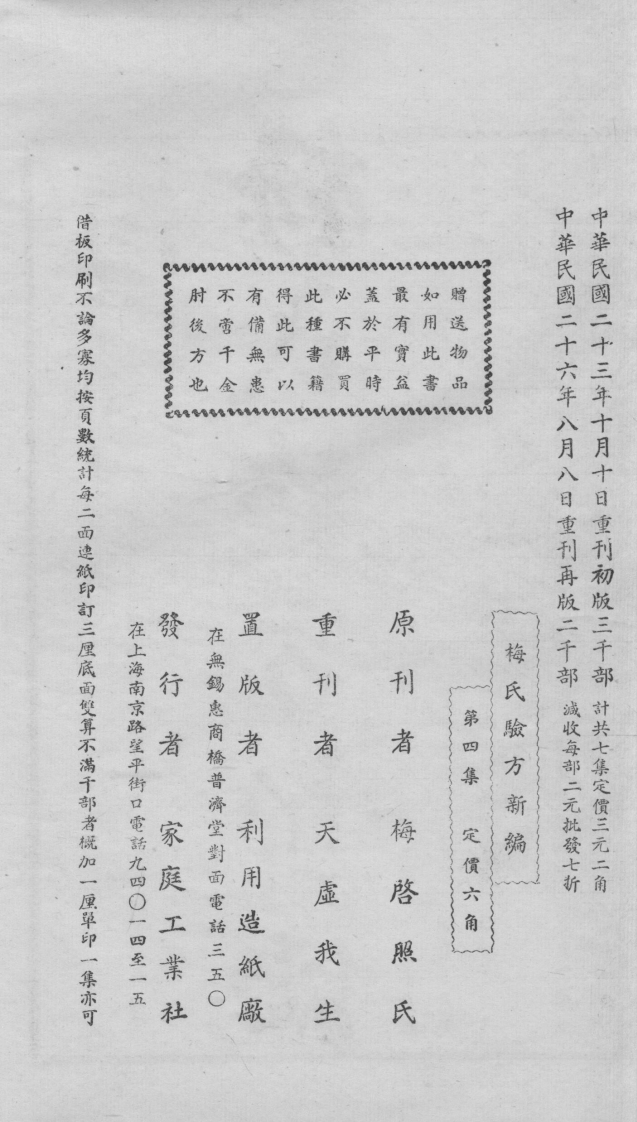 中華民國二十三年十月十日重刊初版三千部 計共七集定價三元二角
中華民國二十六年八月八日重刊再版二千部 減收每部二元批發七折
梅氏驗方新編
第四集 定價六角
贈送物品
如用此書
最有實益
蓋於平時
必不購買
此種書籍
得此可以
有備無患
不啻千金
肘後方也
原刊者 梅啓照氏
重刊者 天虛我生
置版者 利用造紙廠
在無錫惠商橋普濟堂對面電話三五〇
發行者 家庭工業社
在上海南京路望平街口電話九四〇一四至一五
借板印刷不論多寡均按頁數統計每二面連紙印訂三厘底面雙算不滿千部者概加一厘單印一集亦可